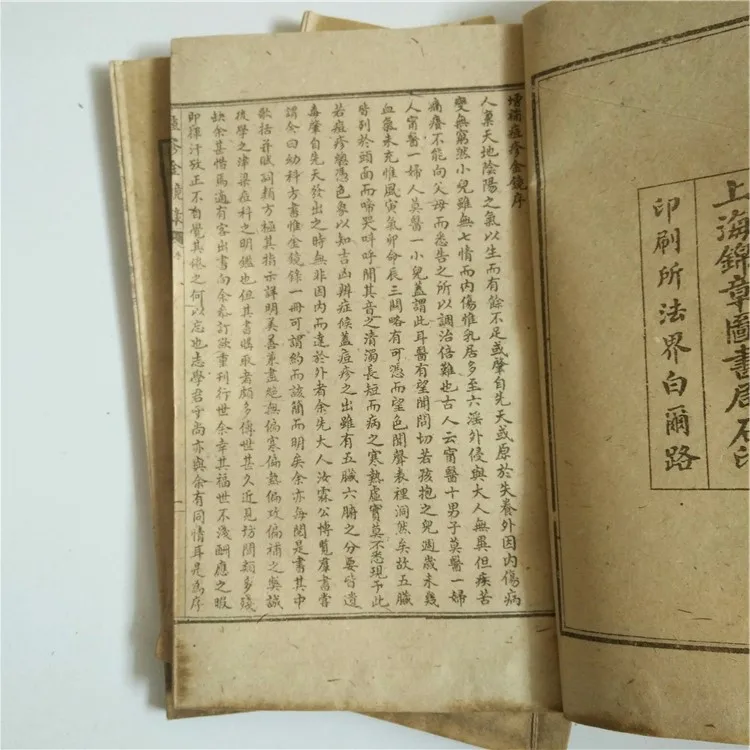 上海錦章圖書局石印
印刷所法界白爾路
增補痘疹金鏡序
人稟天地陰陽之氣以生而有餘不足或肇自先天或原於失養外因內傷病
變無窮然小兒雖無七情而內傷惟乳居多至六淫外侵與大人無異但疾苦
痛癢不能向父母而悉告之所以調治倍難也古人云甯醫十男子莫醫一婦
人甯醫一婦人莫醫一小兒蓋謂此耳醫有望聞問切若孩抱之兒週歲未幾
血氣未充惟風寅氣卯命辰三關略有可憑而望色聞聲表裡洞然矣故五臟
皆列於頭面而啼哭呼呼聞其音之清濁長短而病之寒熱虛實莫不悉現于此
若痘疹總憑色象以知吉凶辨症候蓋痘疹之出雖有五臟六腑之分要皆遺
毒肇自先天發出之時無非因內而達於外者余先大人汝霖公博覽群書嘗
謂余曰幼科方書惟金鏡錄一冊可謂約而該簡而明矣余亦每閱是書其中
歌括并賦詞類方極其指示詳明美善兼盡絕無偏寒偏熱偏攻偏補之弊誠
後學之津梁痘科之明鑑也但其書購求者頗多傳世甚久近見坊間類多殘
缺余甚惜焉適有客出書向余叅訂欲重刊行世余幸其福世不淺酬應之暇
即揮汗攷正不自覺其倦之何以忘也志學君子尚亦與余有同情耳是為序
痘疹金鏡錄 序
一